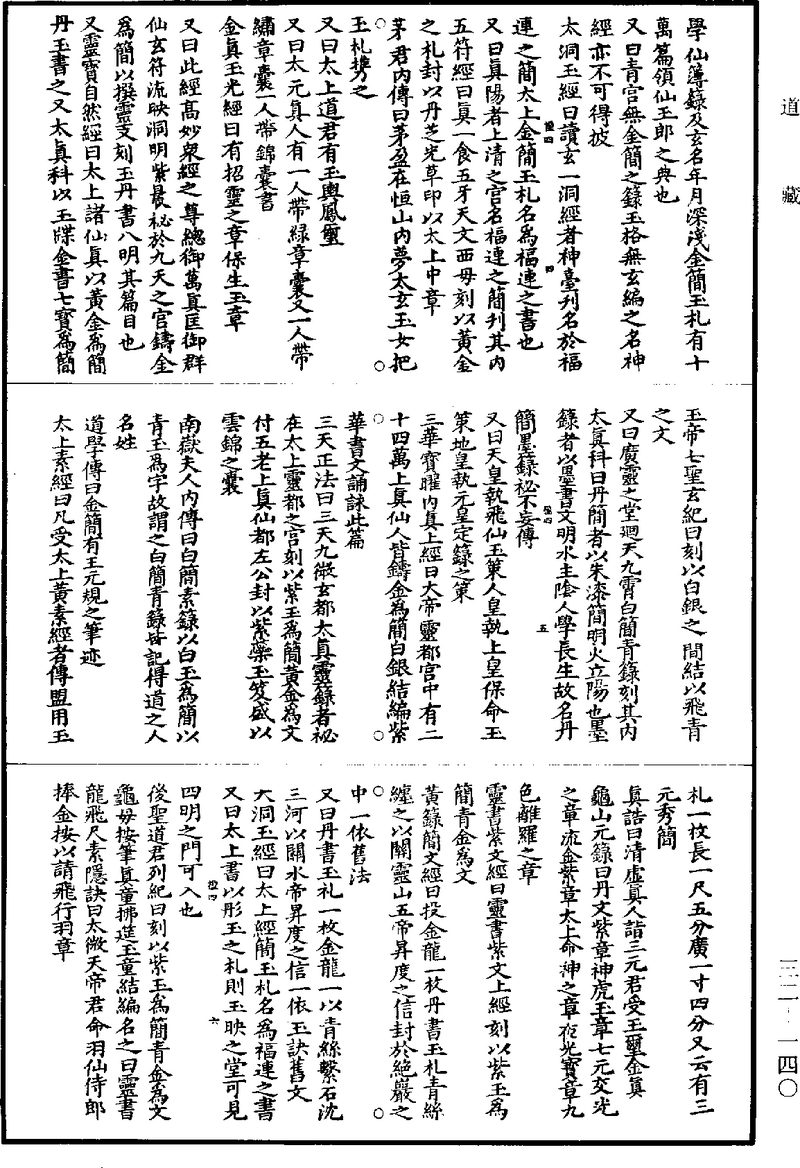 道藏
學仙簿錄及玄名年月深淺金簡玉札有十
萬篇領仙玉郎之典也
又曰青宮無金簡之錄玉格無玄編之名神
經亦不可得披
太洞玉經曰讀玄一洞經者神臺刋名於福
連之簡太上金簡玉札名爲福連之書也
又曰眞陽者上清之宮名福連之簡刋其內
五符經曰眞一食五牙天文西母刻以黃金
之札封以丹芝光草印以太上中章
茅君內傳曰茅盈在恒山內夢太玄玉女把
玉札擕之
又曰太上道君有玉輿鳳璽
又曰太元眞人有一人帶緑章囊又一人帶
繡章囊一人帶錦囊書
金眞玉光經曰有招靈之章保生玉章
又曰此經高妙衆經之尊總御萬眞匡御群
仙玄符流映洞明紫晨祕於九天之宮鑄金
爲簡以撰靈文刻玉丹書八明其篇目也
又靈寶自然經曰太上諸仙眞以黃金爲簡
丹玉書之又太眞科以玉牒金書七寶爲簡
玉帝七聖玄紀曰刻以白銀之簡結以飛青
之文
又曰廣靈之堂廻天九霄白簡青錄刻其內
太眞科曰丹簡者以朱漆簡明火立陽也墨
錄者以墨書文明水主陰人學長生故名丹
簡墨錄祕不妄傳
又曰天皇執飛仙玉策人皇執上皇保命玉
策地皇執元皇定錄之策
三華寶曜內眞上經曰大帝靈都宮中有二
十四萬上眞仙人皆鑄金爲簡白銀結編紫
華書文誦詠此篇
三天正法曰三天九微玄都太眞靈籙者祕
在太上靈都之宮刻以紫玉爲簡黃金爲文
付五老上眞仙都左公封以紫蘂玉笈盛以
雲錦之囊
南嶽夫人內傳曰白簡素籙以白玉爲簡以
青玉爲字故謂之白簡青籙皆記得道之人
名姓
道學傳曰金簡有王元規之筆迹
太上素經曰凡受太上黃素經者傳盟用玉
札一枚長一尺五分廣一寸四分又云有三
元秀簡
眞誥曰清虛眞人詣三元君受玉璽金眞
龜山元錄曰丹文紫章神虎玉章七元交光
之章流金紫章太上命神之章夜光寶章九
色離羅之章
靈書紫文經曰靈書紫文上經刻以紫玉爲
簡青金爲文
黃籙簡文經曰投金龍一枚丹書玉札青絲
纏之以關靈山五帝昇度之信封於絕巖之
中一依舊法
又曰丹書玉札一枚金龍一以青絲繫石沈
三河以關水帝昇度之信一依玉訣舊文
大洞玉經曰太上經簡玉札名爲福連之書
又曰太上書以彤玉之札則玉映之堂可見
四明之門可入也
後聖道君列紀曰刻以紫玉爲簡青金爲文
龜母按筆眞童拂筵玉童結編名之曰靈書
龍飛尺素隱訣曰太微天帝君命羽仙侍郎
捧金按以請飛行羽章
三二—一四〇